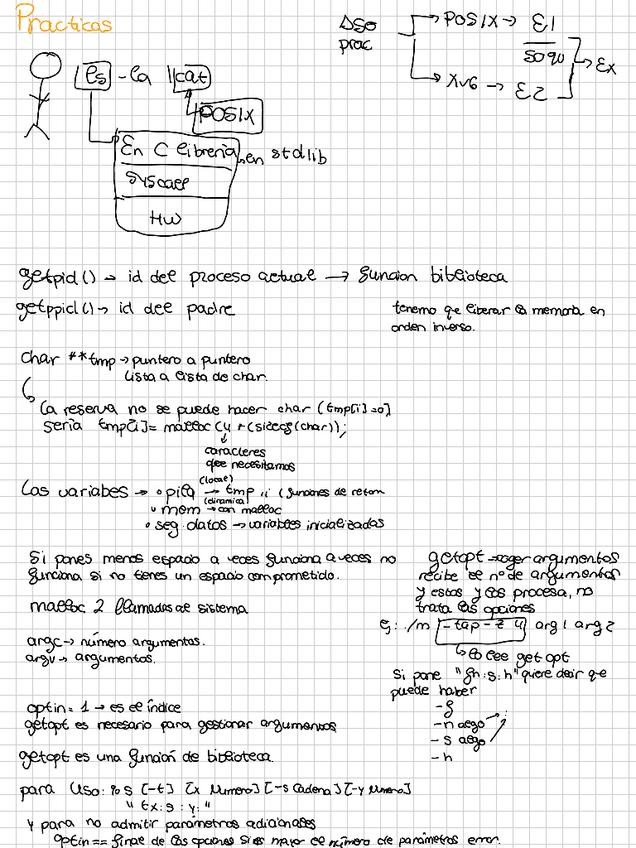 Practicas
DSO prac → POSIX → E1
5090
→ Ex
→ XV6 → E2
ls -la || cat
POSIX
En C libreria, en stdlib
Syscall
HW
getpid() → id del proceso actual → funcion biblioteca
getppid() → id del padre
tenemo que liberar la memoria en
orden inverso.
char **tmp → puntero a puntero
lista a lista de char.
la reserva no se puede hacer char (tmp[i]=0]
sería tmp[i] = malloc (4 * (sizeof(char));
caracteres
que necesitamos
Las variabes → • pila (local) → tmp i (funciones de retorn
(dinamica)
• mem → con malloc
• seg. datos → variables inicializadas
Si pones menos espacio a veces funciona a veces no
funciona si no tienes un espacio comprometido.
malloc 2 llamadas al sistema
argc → número argumentos.
argv → argumentos.
getopt → coger argumentos
recibe el nº de argumentos
y estos y los procesa, no
trata las opciones
ej: ./m -tap -t 4 arg1 arg2
lo lee get opt
Si pone "fn:s:h" quiere decir que
puede haber
-f
-n algo :
-s algo
-h
optin = 1 → es el índice
getopt es necesario para gestionar argumentos
getopt es una función de biblioteca.
para Uso: %s [-t] [x Numero] [-s Cadena] [-y Numero]
"tx:s:y:"
Y para no admitir parámetros adicionales
optin == final de las opciones si es mayor al número de parámetros error.